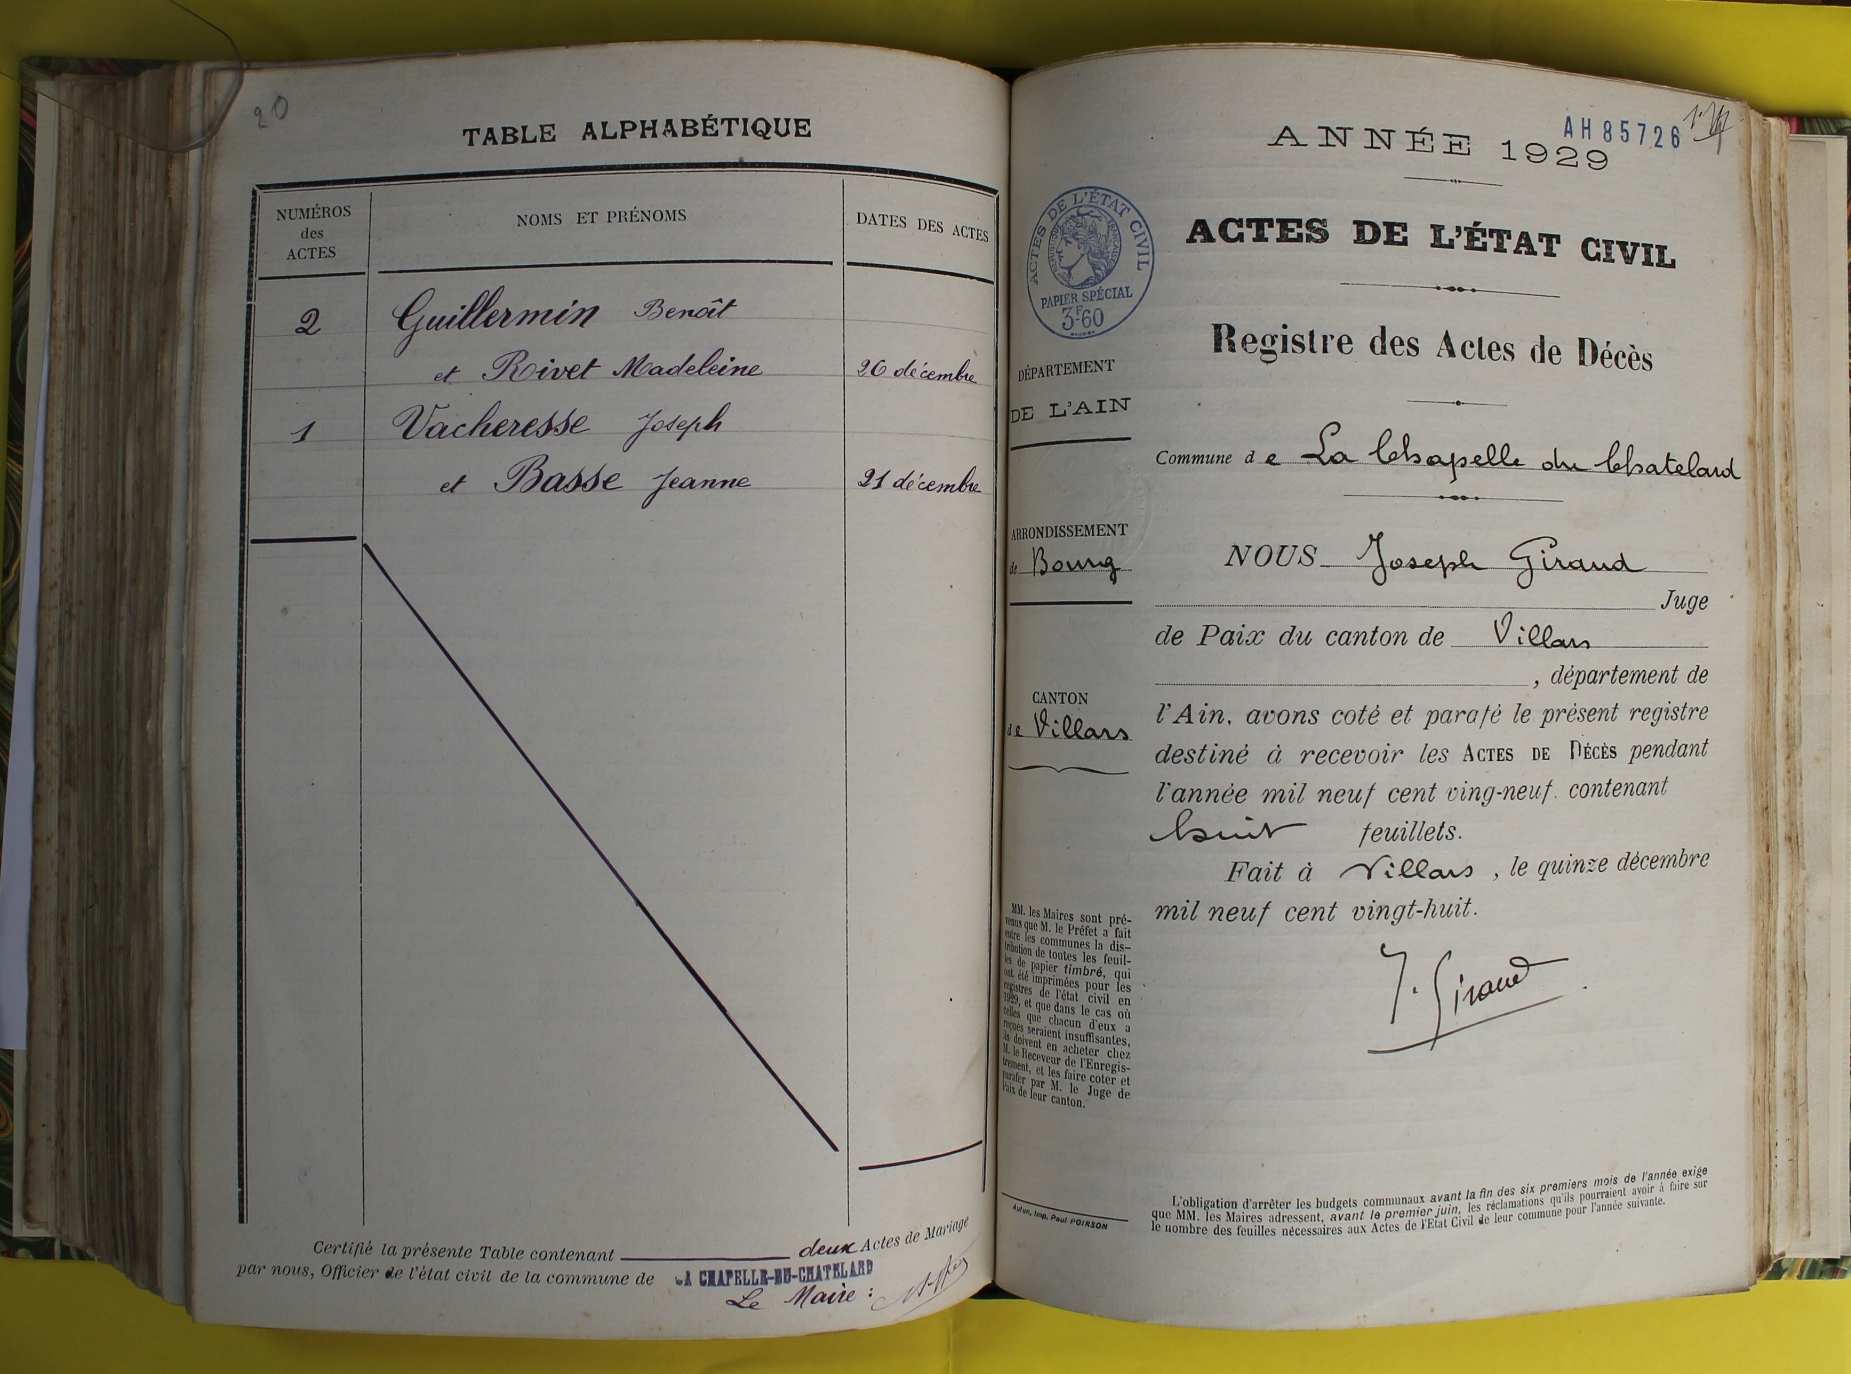 20
TABLE ALPHABÉTIQUE
NUMÉROS
des
ACTES
NOMS ET PRÉNOMS
DATES DES ACTES
2 Guillermin Benoît
et Rivet Madeleine 26 décembre
1 Vacheresse Joseph
et Basse Jeanne 21 décembre
Certifié la présente Table contenant deux Actes de Mariage
par nous, Officier de l'état civil de la commune de LA CHAPELLE-DU-CHATELARD
Le Maire :
AH85726
ANNÉE 1929
ACTES DE L'ÉTAT CIVIL
PAPIER SPÉCIAL
3F60
ACTES DE L'ÉTAT CIVIL
Registre des Actes de Décès
DÉPARTEMENT
DE L'AIN
Commune de La Chapelle du Chatelard
ARRONDISSEMENT
de Bourg
NOUS Joseph Giraud
Juge
de Paix du canton de Villars
, département de
CANTON
de Villars
l'Ain, avons coté et parafé le présent registre
destiné à recevoir les ACTES DE DÉCÈS pendant
l'année mil neuf cent ving-neuf. contenant
huit feuillets.
Fait à Villars, le quinze décembre
mil neuf cent vingt-huit.
J. Giraud
MM. les Maires sont pré-
venus que M. le Préfet a fait
entre les communes la dis-
tribution de toutes les feuil-
les de papier timbré, qui
ont été imprimées pour les
registres de l'état civil en
1929, et que dans le cas où
celles que chacun d'eux a
reçues seraient insuffisantes,
ils doivent en acheter chez
M. le Receveur de l'Enregis-
trement, et les faire coter et
parafer par M. le Juge de
Paix de leur canton.
Autun, Imp. Paul POIRSON
L'obligation d'arrêter les budgets communaux avant la fin des six premiers mois de l'année exige
que MM. les Maires adressent, avant le premier juin, les réclamations qu'ils pourraient avoir à faire sur
le nombre des feuilles nécessaires aux Actes de l'Etat Civil de leur commune pour l'année suivante.